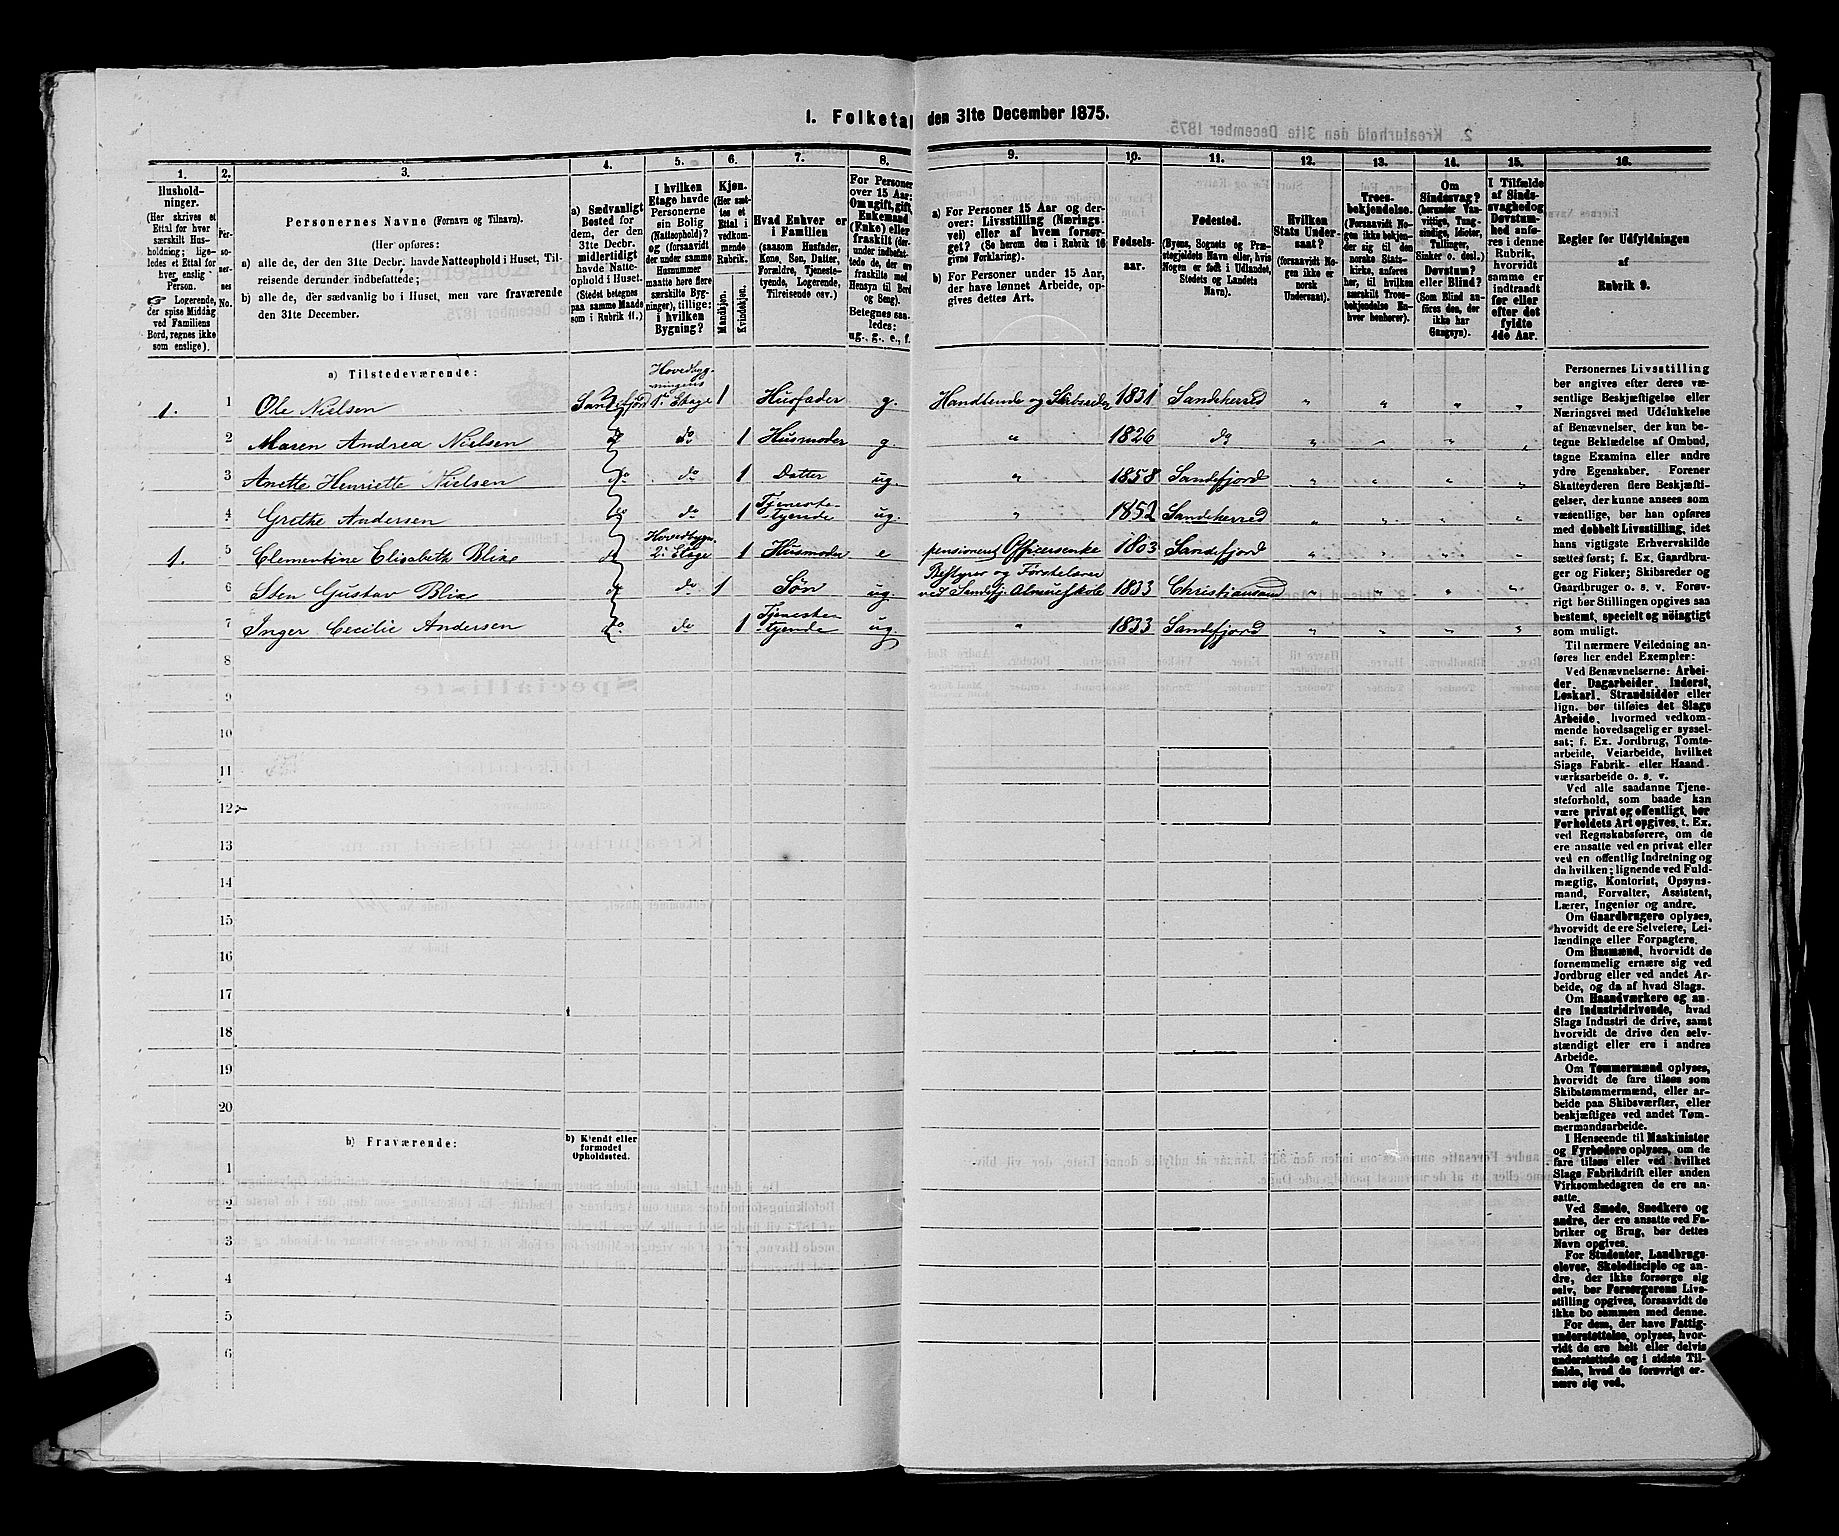 1. Folketal den 31te December 1875.
1.
2.
3.
4.
5.
6.
7.
8.
9.
10.
11.
12.
13.
14.
15.
16.
Hushold-
ninger.
(Her skrives et
Ettal for hver
særskilt Hus-
holdning; lige-
ledes et Ettal for
hver enslig
Person.
☞ Logerende,
der spise Middag
ved Familiens
Bord, regnes ikke
som enslige).
Per-
so-
ner-
nes
No.
Personernes Navne (Fornavn og Tilnavn).
(Her opføres:
a) alle de, der den 31te Decbr. havde Natteophold i Huset, Til-
reisende derunder indbefattede;
b) alle de, der sædvanlig bo i Huset, men vare fraværende
den 31te December.
a) Sædvanligt
Bosted for
dem, der den
31te Decbr.
midlertidigt
havde Natte-
ophold i Huset.
(Stedet betegnes
paa samme Maade
som i Rubrik 11.)
I hvilken
Etage havde
Personerne
sin Bolig
(Natteophold)?
og (forsaavidt
der under samme
Husnummer
maatte høre flere
særskilte Byg-
ninger), tillige:
i hvilken
Bygning?
Kjøn.
(Her sæt-
tes et
Ettal i
vedkom-
mende
Rubrik.
Mandkjøn.
Kvindekjøn.
Hvad Enhver er
i Familien
(saasom Husfader,
Kone, Søn, Datter,
Forældre, Tjeneste-
tyende, Logerende,
Tilreisende osv.)
For Personer
over 15 Aar:
Om ugift, gift,
Enkemand
(Enke) eller
fraskilt (der-
under indbefat-
tede de, der ere
fraskilte med
Hensyn til Bord
og Seng).
Betegnes saa-
ledes:
ug., g., e., f.
a) For Personer 15 Aar og der-
over: Livsstilling (Nærings-
vei) eller af hvem forsør-
get? (Se herom den i Rubrik 16
givne Forklaring).
b) For Personer under 15 Aar,
der have lønnet Arbeide, op-
gives dettes Art.
Fødsels-
aar.
Fødested.
(Byens, Sognets og Præ-
stegjeldets Navn eller, hvis
Nogen er født i Udlandet,
Stedets og Landets
Navn).
Hvilken
Stats Under-
saat?
(forsaavidt No-
gen ikke er
norsk
Undersaat).
Troes-
bekjendelse.
(Forsaavidt No-
gen ikke bekjen-
der sig til den
norske Stats-
kirke, anføres
her, til hvilken
særskilt Troes-
bekjendelse En-
hver henhører).
Om
Sindssvag?
(herunder Van-
vittige, Tung-
sindige, Idioter,
Tullinger,
Sinker o. desl.)
Døvstum?
eller Blind?
(Som Blind an-
føres den, der
ikke har
Gangsyn).
I Tilfælde
af Sinds-
svaghed og
Døvstum-
hed anfø-
res i denne
Rubrik,
hvorvidt
samme er
indtraadt
før eller
efter det
fyldte
4de Aar.
Regler for Udfyldningen
af
Rubrik 9.
a) Tilstedeværende:
1. 1 Ole Nielsen Sandefjord Hovedbyg-
ningens
1ste Etage 1 Husfader g. Handlende og Skibsreder 1831 Sandeherred " " " "
2 Maren Andrea Nielsen do do 1 Husmoder g. " 1826 do " " " "
3 Anette Henriette Nielsen do do 1 Datter ug. " 1858 Sandefjord " " " "
4 Grethe Andersen do do 1 Tjeneste-
tyende ug. " 1852 Sandeherred " " " "
1. 5 Clementine Elisabeth Blix do Hovedbygn.
2den Etage 1 Husmoder e pensioneret Officersenke 1803 Sandefjord " " " "
6 Sten Gustav Blix do do 1 Søn ug. Bestyrer og Førstelærer
ved Sandefj. Almueskole 1833 Christiansand " " " "
7 Inger Cecilie Andersen do do 1 Tjeneste-
tyende ug. " 1833 Sandefjord " " " "
8
9
10
11
12
13
14
15
16
17
18
19
20
b) Fraværende:
b) Kjendt eller
formodet
Opholdssted.
1
2
3
4
5
6
Personernes Livsstilling
bør angives efter deres væ-
sentlige Beskjæftigelse eller
Næringsvei med Udelukkelse
af Benævnelser, der kun be-
tegne Beklædelse af Ombud,
tagne Examina eller andre
ydre Egenskaber. Forener
Skatteyderen flere Beskjæfti-
gelser, der kunne ansees som
væsentlige, bør han opføres
med dobbelt Livsstilling, idet
hans vigtigste Erhvervskilde
sættes først; f. Ex. Gaardbru-
ger og Fisker; Skibsreder og
Gaardbruger o. s. v. Forøv-
rigt bør Stillingen opgives saa
bestemt, specielt og nøiagtigt
som muligt.
Til nærmere Veiledning an-
føres her endel Exempler:
Ved Benævnelserne: Arbei-
der, Dagarbeider, Inderst,
Løskarl, Strandsidder eller
lign. bør tilføies det Slags
Arbeide, hvormed vedkom-
mende hovedsagelig er syssel-
sat; f. Ex. Jordbrug, Tomte-
arbeide, Veiarbeide, hvilket
Slags Fabrik- eller Haand-
værksarbeide o. s. v.
Ved alle saadanne Tjene-
steforhold, som baade kan
være privat og offentligt, bør
Forholdets Art opgives, t. Ex.
ved Regnskabsførere, om de
ere ansatte ved en privat eller
ved en offentlig Indretning og
da hvilken; lignende ved Fuld-
mægtig, Kontorist, Opsyns-
mand, Forvalter, Assistent,
Lærer, Ingeniør og andre.
Om Gaardbrugere oplyses,
hvorvidt de ere Selveiere, Lei-
lændinge eller Forpagtere.
Om Husmænd, hvorvidt de
fornemmelig ernære sig ved
Jordbrug eller ved andet Ar-
beide, og da af hvad Slags.
Om Haandværkere og an-
dre Industridrivende, hvad
Slags Industri de drive, samt
hvorvidt de drive den selv-
stændigt eller ere i andres
Arbeide.
Om Tømmermænd oplyses,
hvorvidt de fare tilsøs som
Skibstømmermænd, eller ar-
beide paa Skibsværfter, eller
beskjæftiges ved andet Tøm-
mermandsarbeide.
I Henseende til Maskinister
og Fyrbødere oplyses, om de
fare tilsøs eller ved hvilket
Slags Fabrikdrift eller anden
Virksomhedsgren de ere an-
satte.
Ved Smede, Snedkere og
andre, der ere ansatte ved Fa-
briker og Brug, bør dettes
Navn opgives.
For Studenter, Landbrugs-
elever, Skoledisciple og an-
dre, der ikke forsørge sig
selv, bør Forsørgerens Livs-
stilling opgives, forsaavidt de
ikke bo sammen med denne.
For dem, der have Fattig-
understøttelse, oplyses, hvor-
vidt de ere helt eller delvis
understøttede og i sidste Til-
fælde, hvad de forøvrigt er-
nære sig ved.